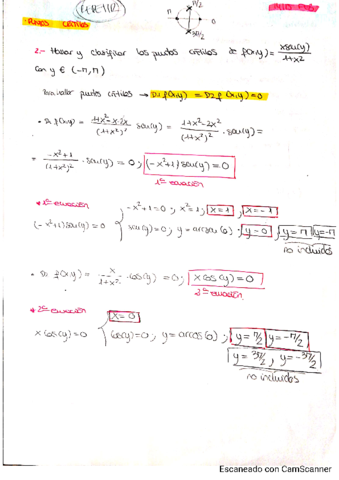 π π/2 0 3π/2
PUNTOS CRÍTICOS
2.- Hallar y clasificar los puntos críticos de f(x,y) = xsen(y)/1+x²
Con y ∈ (-π,π)
Evaluar puntos críticos → D1 f(x,y) = D2 f(x,y) = 0
• D1 f(x,y) = 1+x²-x·2x/(1+x²)² · sen(y) = 1+x²-2x²/(1+x²)² · sen(y) =
= -x²+1/(1+x²)² · sen(y) = 0 ; (-x²+1)sen(y) = 0
1ª ecuación
* 1ª ecuación
-x²+1=0 ; x²=1 ; x=1 , x=-1
(-x²+1)sen(y)=0
sen(y)=0 ; y=arcsen(0) ; y=0 ; y=π y=-π
no incluidos
• D2 f(x,y) = x/1+x² · cos(y) = 0 ; x cos(y) = 0
2ª ecuación
* 2ª ecuación
x=0
x cos(y)=0
cos(y)=0 ; y=arccos(0) ; y=π/2 y=-π/2
y=3π/2 , y=-3π/2
no incluidos
Escaneado con CamScanner